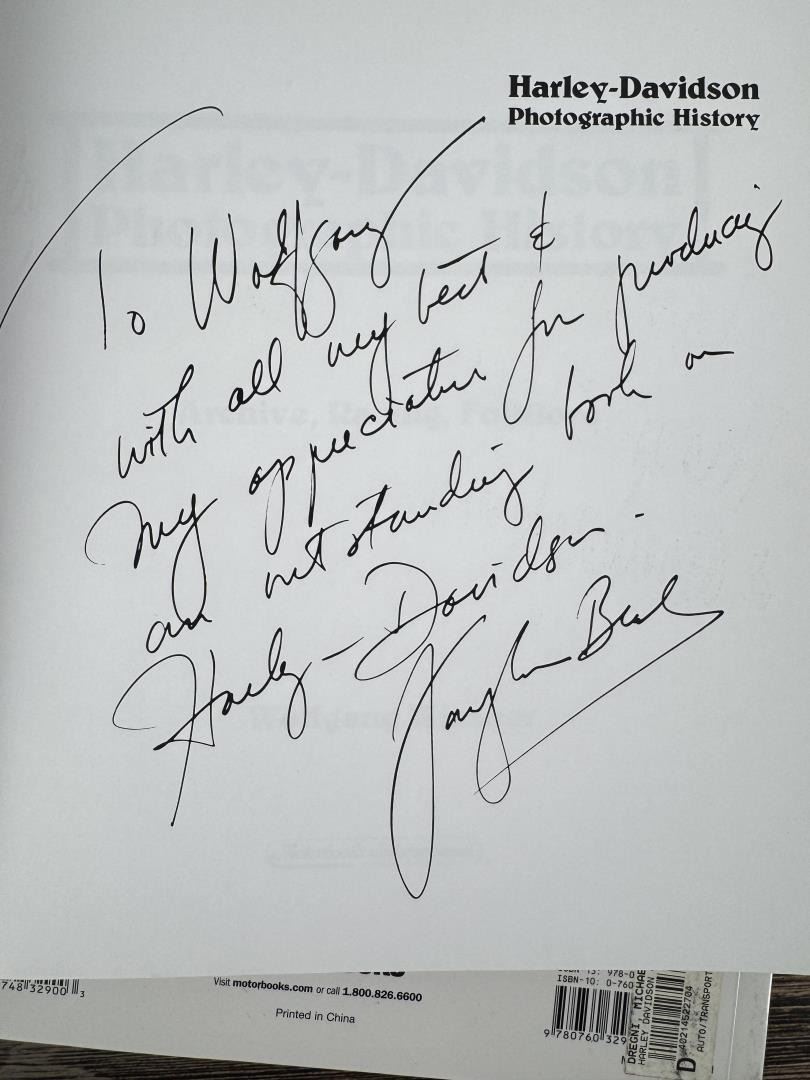 Harley-Davidson
Photographic History
To Wolfgang
with all my best &
my appreciation for producing
an outstanding book on
Harley-Davidson.
Visit motorbooks.com or call 1.800.826.6600
Printed in China
748 32900 3
ISBN-13: 978-0
ISBN-10: 0-760
9 780760 329
DREGNI, MICHAE
HARLEY DAVIDSON
D 40214522704
AUTO/TRANSPORT